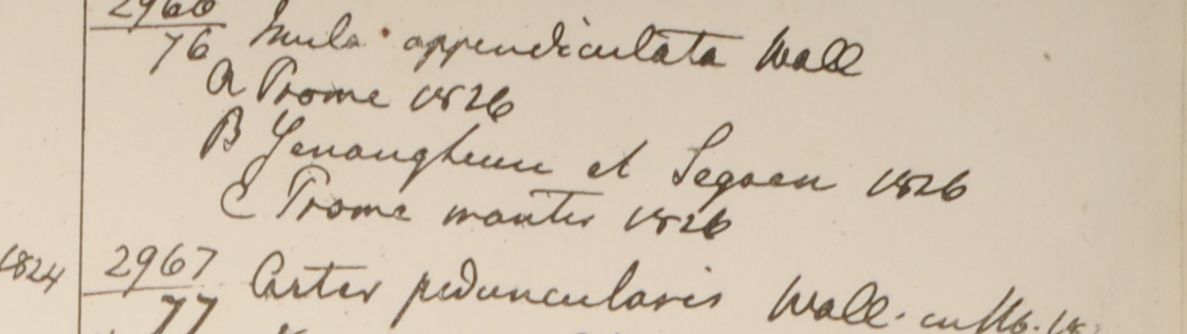 2966
76 Inula appendiculata Wall
A Prome 1826
B Yenangheum et Segaen 1826
C Prome montes 1826
1824 2967
77 Aster peduncularis Wall. in Hb. 182